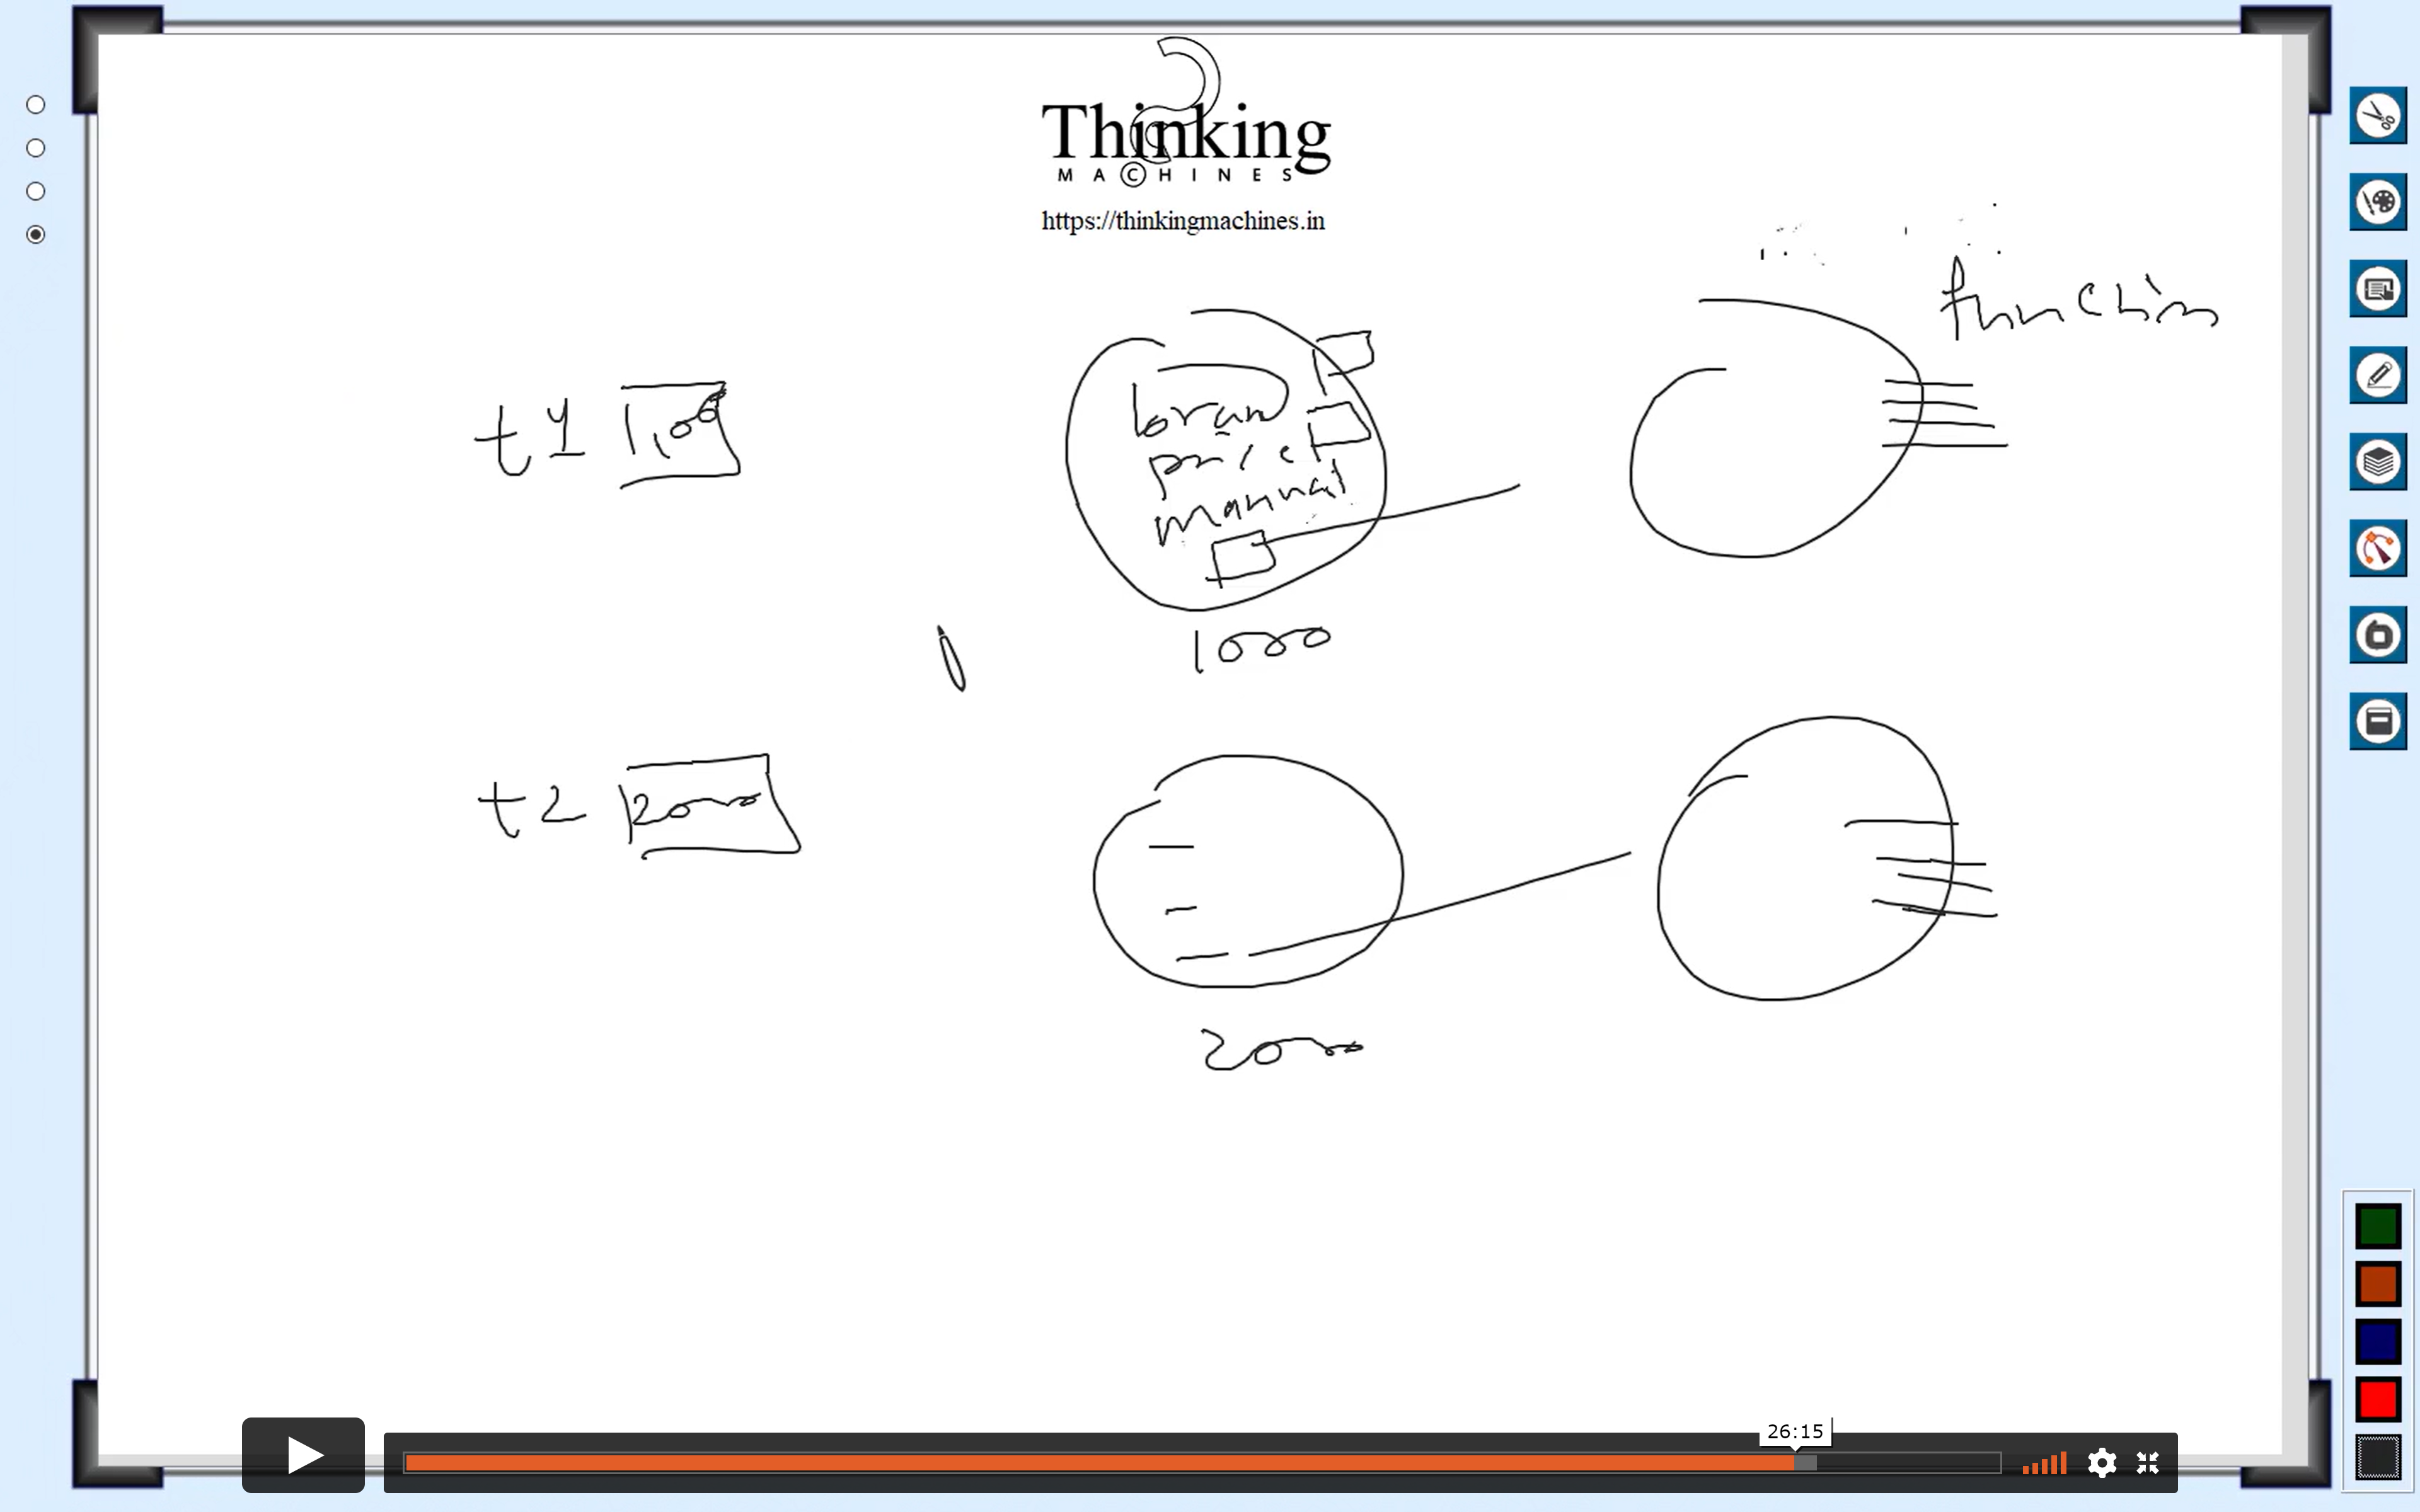 Thinking
MACHINES
https://thinkingmachines.in
function
t1
price
manual
1000
t2 2000
2000
26:15